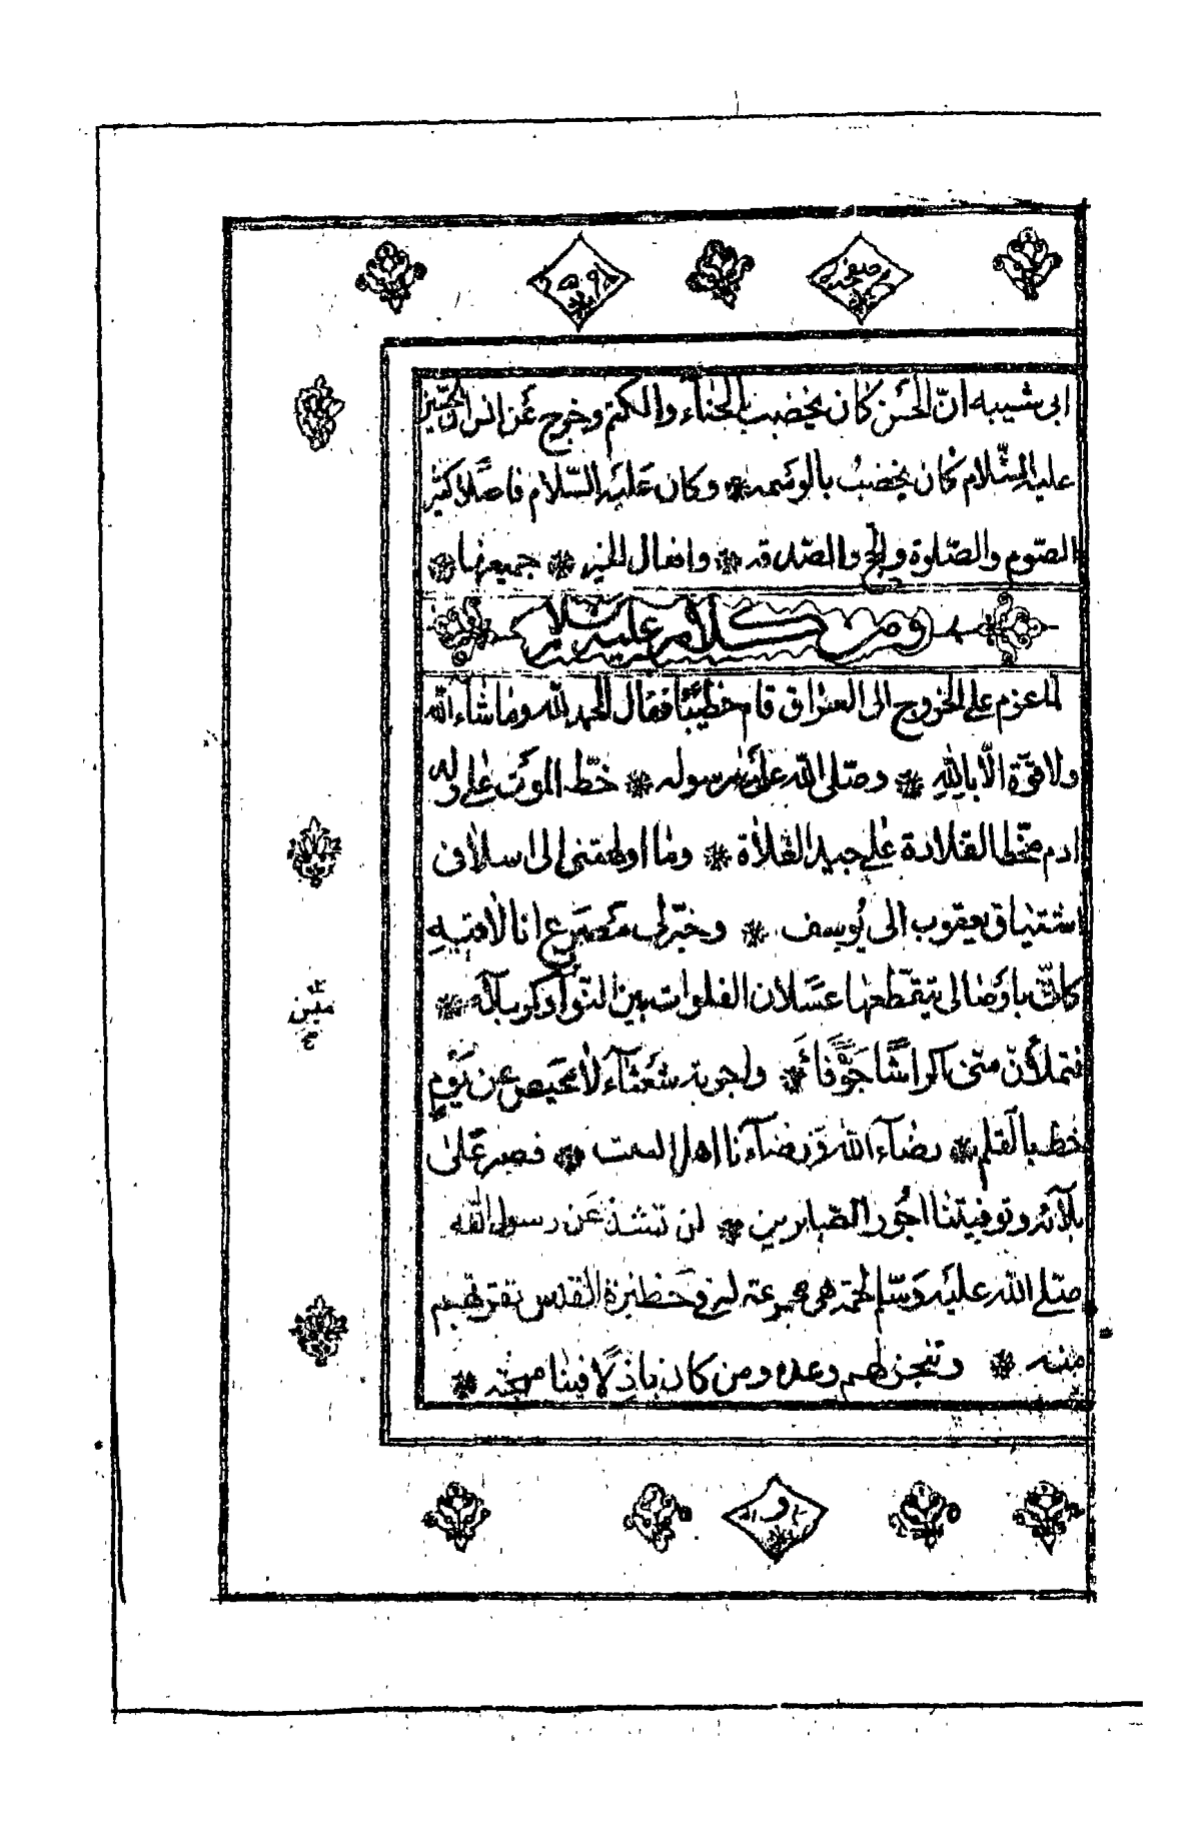 ابى شيبه انّ الحسَن كان يخضب بالحنّاء والكتم وخرج عَن انس انّ الحسين
عليه السّلام كان يخضبُ بالوَسمه وكان عَليَه السّلام فاضلاً كثير
الصّوم والصّلوة والحج والصّدقه وافعال الخير جميعها
ومن كلامر عليه السلام
لما عزم على الخروج الى العراق قام خطيبًا فقال الحمد لله وما شاء الله
ولا قوّة الّا بالله وصلى الله على رسوله خطّ الموت على ولد
ادم مخط القلادة على جيد الفتاة وما اولهتنى الى اسلافى
اشتياق يعقوب الى يُوسف وخيّر لى مَصرع انا لاقيهِ
كانّى باوصالى يتقطعها عسَلان الفلوات بين النّواويس وكربلا
فتملأنّ منّى اكراشًا جَوْفًا واجربة سغبآء لا محيص عن يَوْمٍ
خط بالقلم رضآء الله رضآءنا اهل البيت فصبر عَلى
بلآئه وتوفيتنا اجُور الصّابرين لن تشذ عَن رسول الله
صلى الله عليَه وَسلم لحمته هى مجموعة له فى حَظيرة القدس تقر بهم
عينه وتنجز لهم وعده ومن كان باذِلًا فينا مهجته